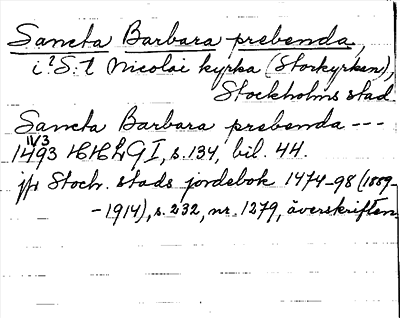 Sancta Barbara prebenda,
i ? S:t Nicolai kyrka (Storkyrkan),
Stockholms stad
Sancta Barbara prebenda ---
11/3
1493 HHLG I, s. 134, bil. 44.
jfr Stoch. stads jordebok 1474-98 (1889-
-1914), s. 232, nr. 1279, överskriften.